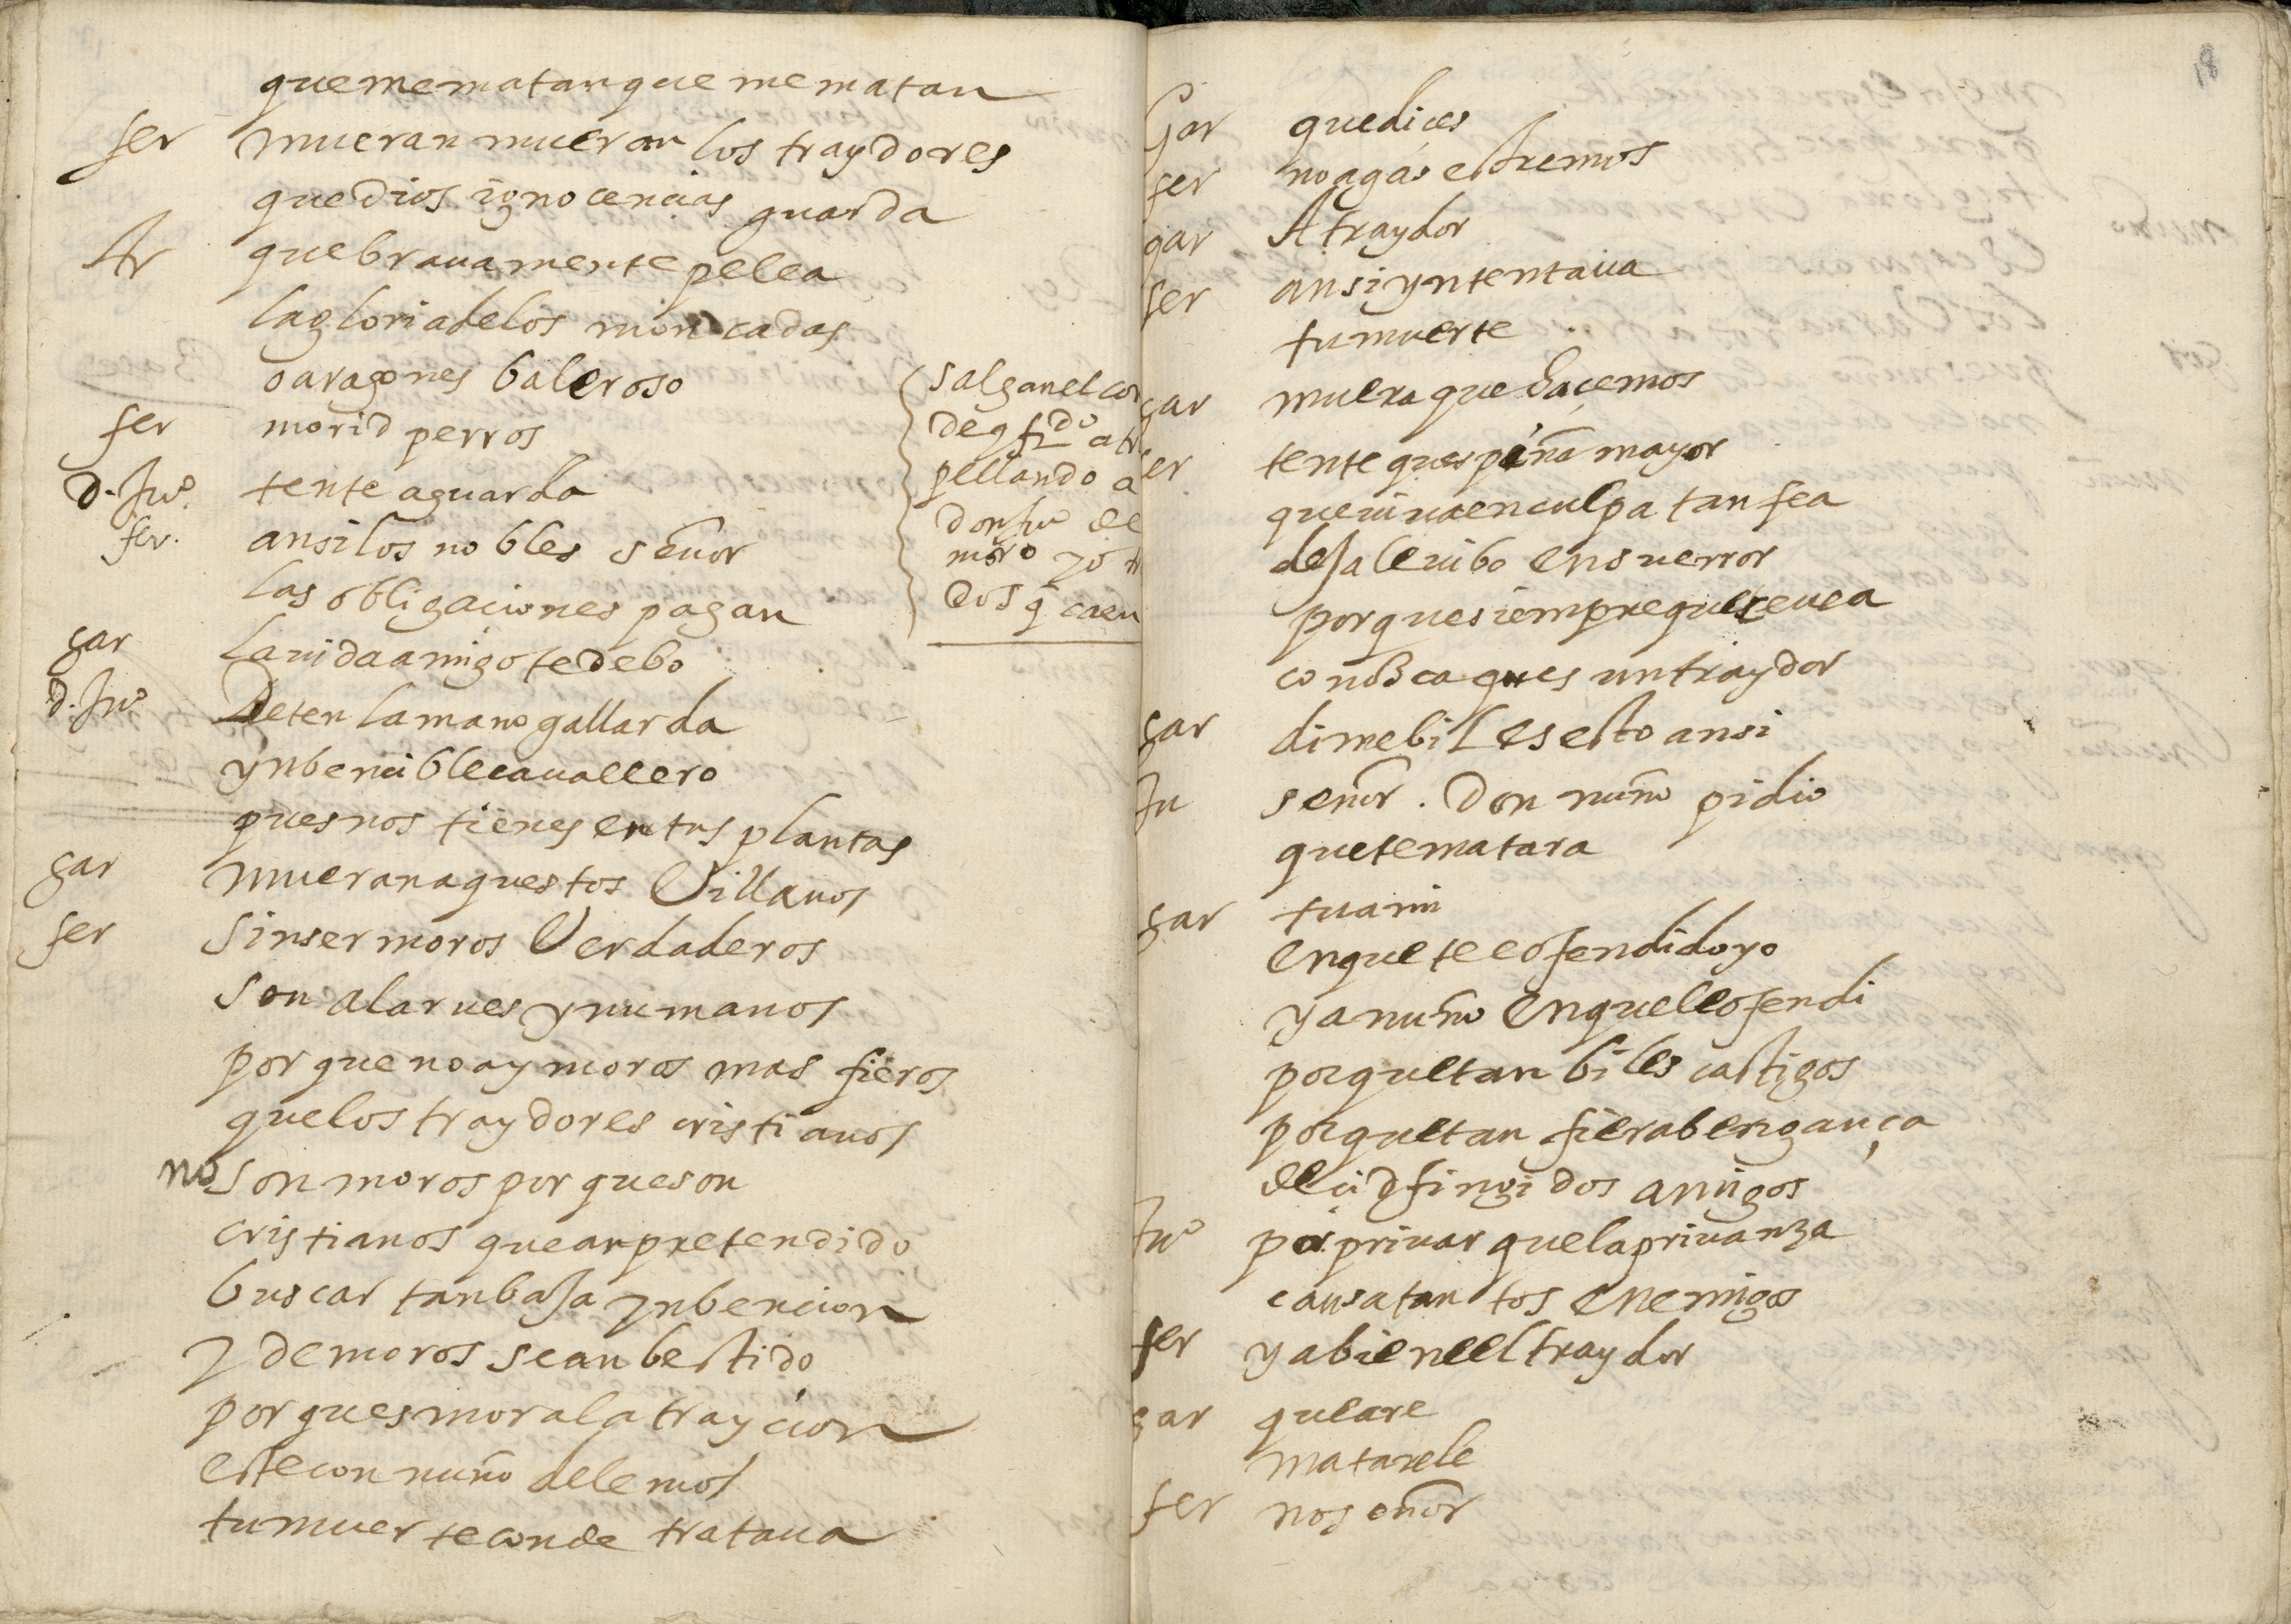 que me matan que me matan
fer mueran mueran los traydores
que dios ignocencias guarda
Ar que brauamente pelea
la gloria de los moncadas
o aragones baleroso
fer morid perros
d. Juº tente aguarda
fer. ansi los nobles señor
las obligaciones pagan
salgan el con
de y fdº atr
pellando a
don juº de
moro y o tr
dos q̄ caen
gar la uida amigo te debo
d. Juº Deten la mano gallarda
ynbencible cauallero
pues nos tienes en tus plantas
gar mueran aquestos Villanos
fer sin ser moros Verdaderos
son alarues ynumanos
por que no ay moros mas fieros
que los traydores cristianos
no son moros por que son
cristianos que an pretendido
buscar tan baja ynbencion
y de moros se an bestido
por ques mora la traycion
este con nuño de lemos
tu muerte conde trataua
18
Gar que dices
fer no agas estremos
gar A traydor
fer ansi yntentaua
tu muerte
gar muera que haçemos
fer tente ques pena mayor
que uiua en culpa tan fea
deja le uibo en su error
por que siempre que se uea
conosca ques un traydor
gar dime bil es esto ansi
Ju señor. Don nuño pidio
que te matara
gar tu a mi
en que te e ofendido yo
y a nuño en que le ofendi
por que tan biles castigos
por que tan fiera bengança
decid fingidos amigos
Juº por priuar que la priuanza
causa tantos enemigos
fer ya biene el traydor
gar que are
matarele
fer no señor